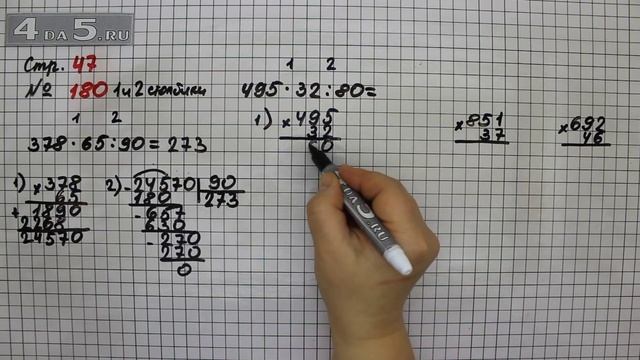 4DA5.RU
Стр. 47
№ 180 1 и 2 столбики
1 2
378·65:90=273
1) ×378
65
+1890
2268
24570
2) -24570 | 90
180 273
-657
630
-270
270
0
1 2
495·32:80=
1) ×495
32
90
×851
37
×692
46